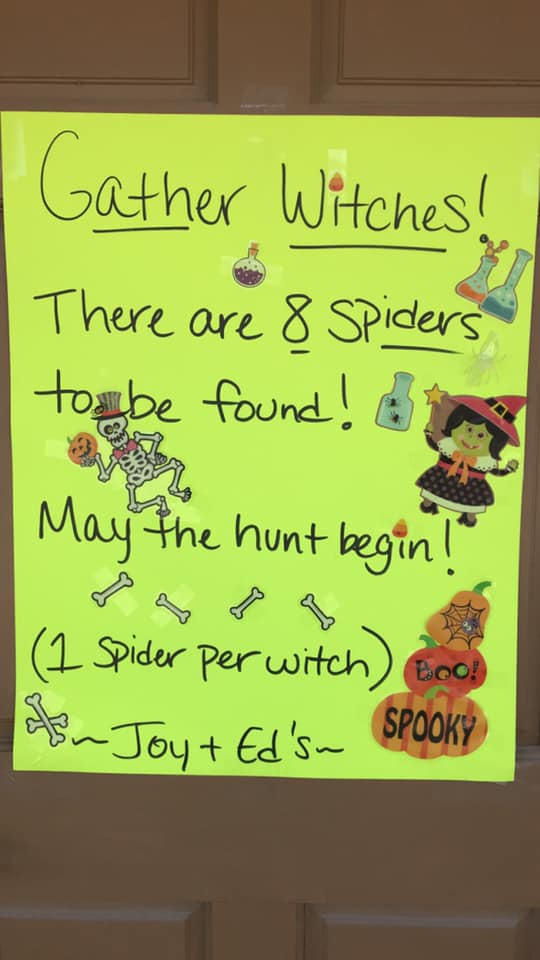 Gather Witches!
There are 8 Spiders
to be found!
May the hunt begin!
(1 Spider per witch)
BOO!
SPOOKY
~Joy + Ed's~